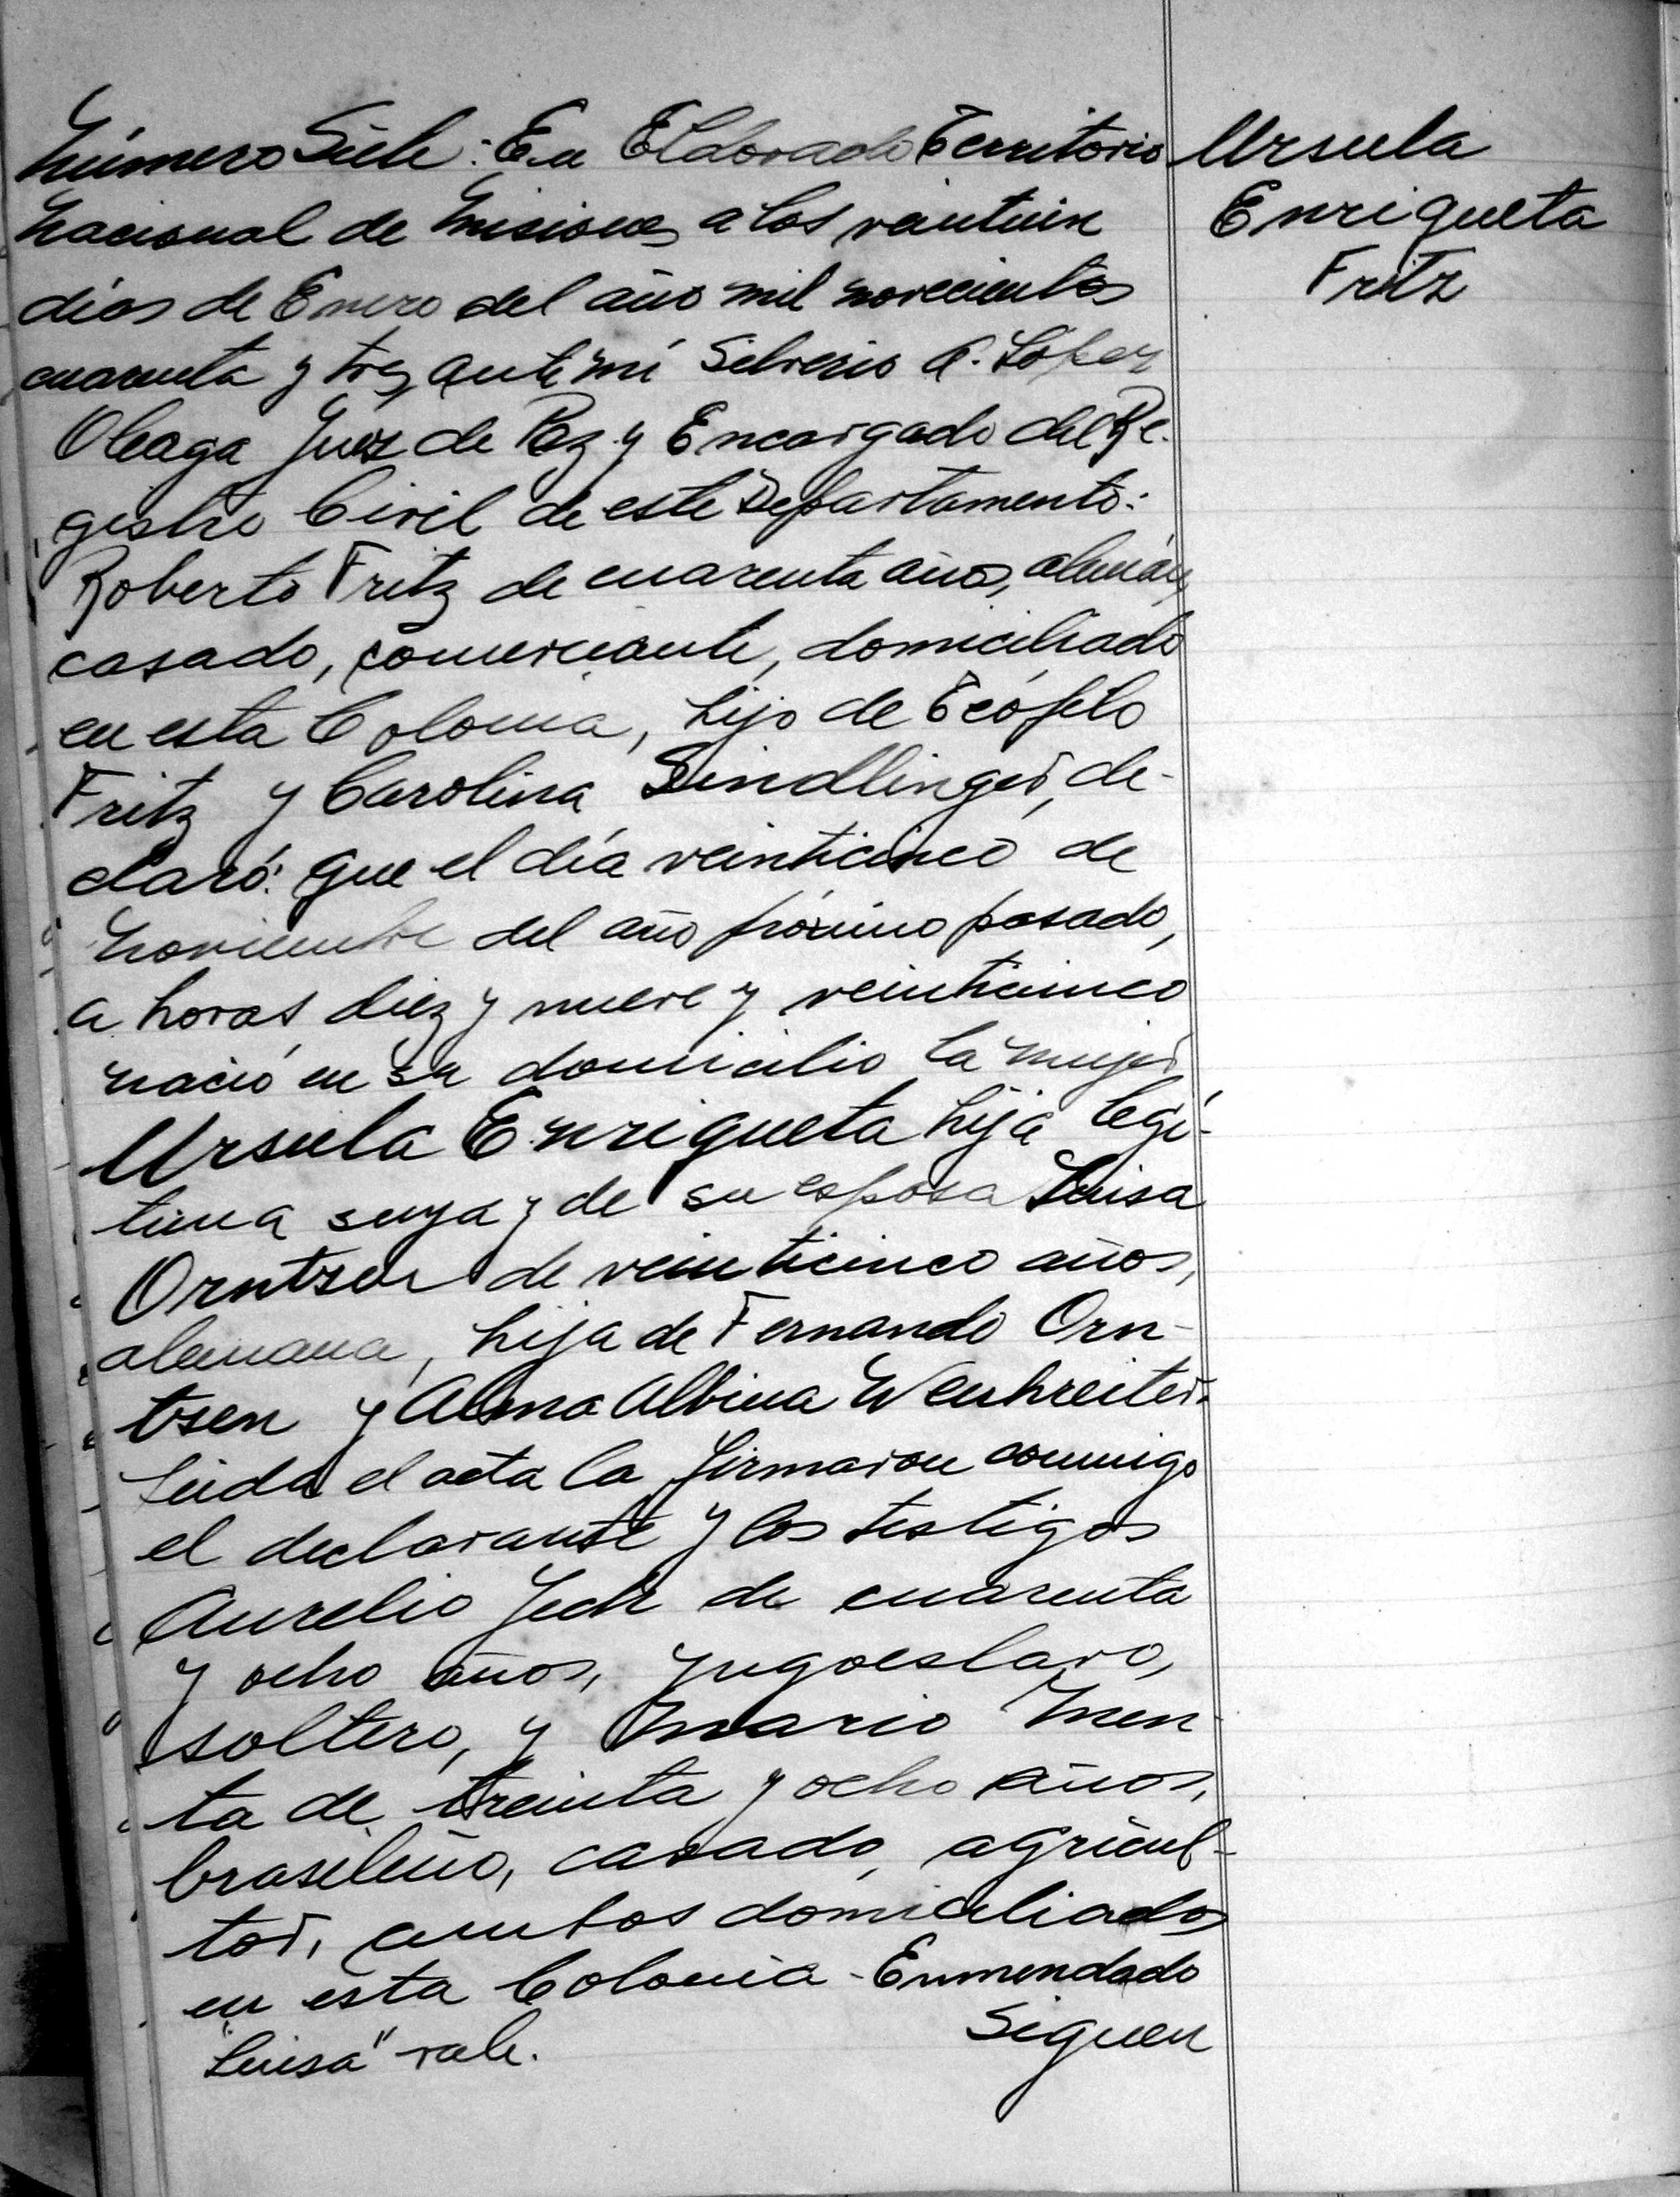 Número Siete: En Eldorado Territorio
Nacional de Misiones a los veintiun
días de Enero del año mil novecientos
cuarenta y tres, ante mí Silverio A. López
Oleaga Juez de Paz y Encargado del Re-
gistro Civil de este Departamento:
Roberto Fritz de cuarenta años, alemán,
casado, comerciante, domiciliado
en esta Colonia, hijo de Teófilo
Fritz y Carolina Sindlinger, de-
claró: Que el día veinticinco de
Noviembre del año próximo pasado,
a horas diez y nueve y veinticinco
nació en su domicilio la mujer
Ursula Enriqueta hija legí-
tima suya y de su esposa Luisa
Orntzen de veinticinco años,
alemana, hija de Fernando Orn-
tsen y Alma Albina
Leída el acta la firmaron conmigo
el declarante y los testigos
Aurelio Jech de cuarenta
y ocho años, yugoeslavo,
soltero, y Mario Men-
ta de treinta y ocho años,
brasileño, casado, agricul-
tor, ambos domiciliados
en esta Colonia - Enmendado
"Luisa" vale. Siguen
Ursula
Enriqueta
Fritz